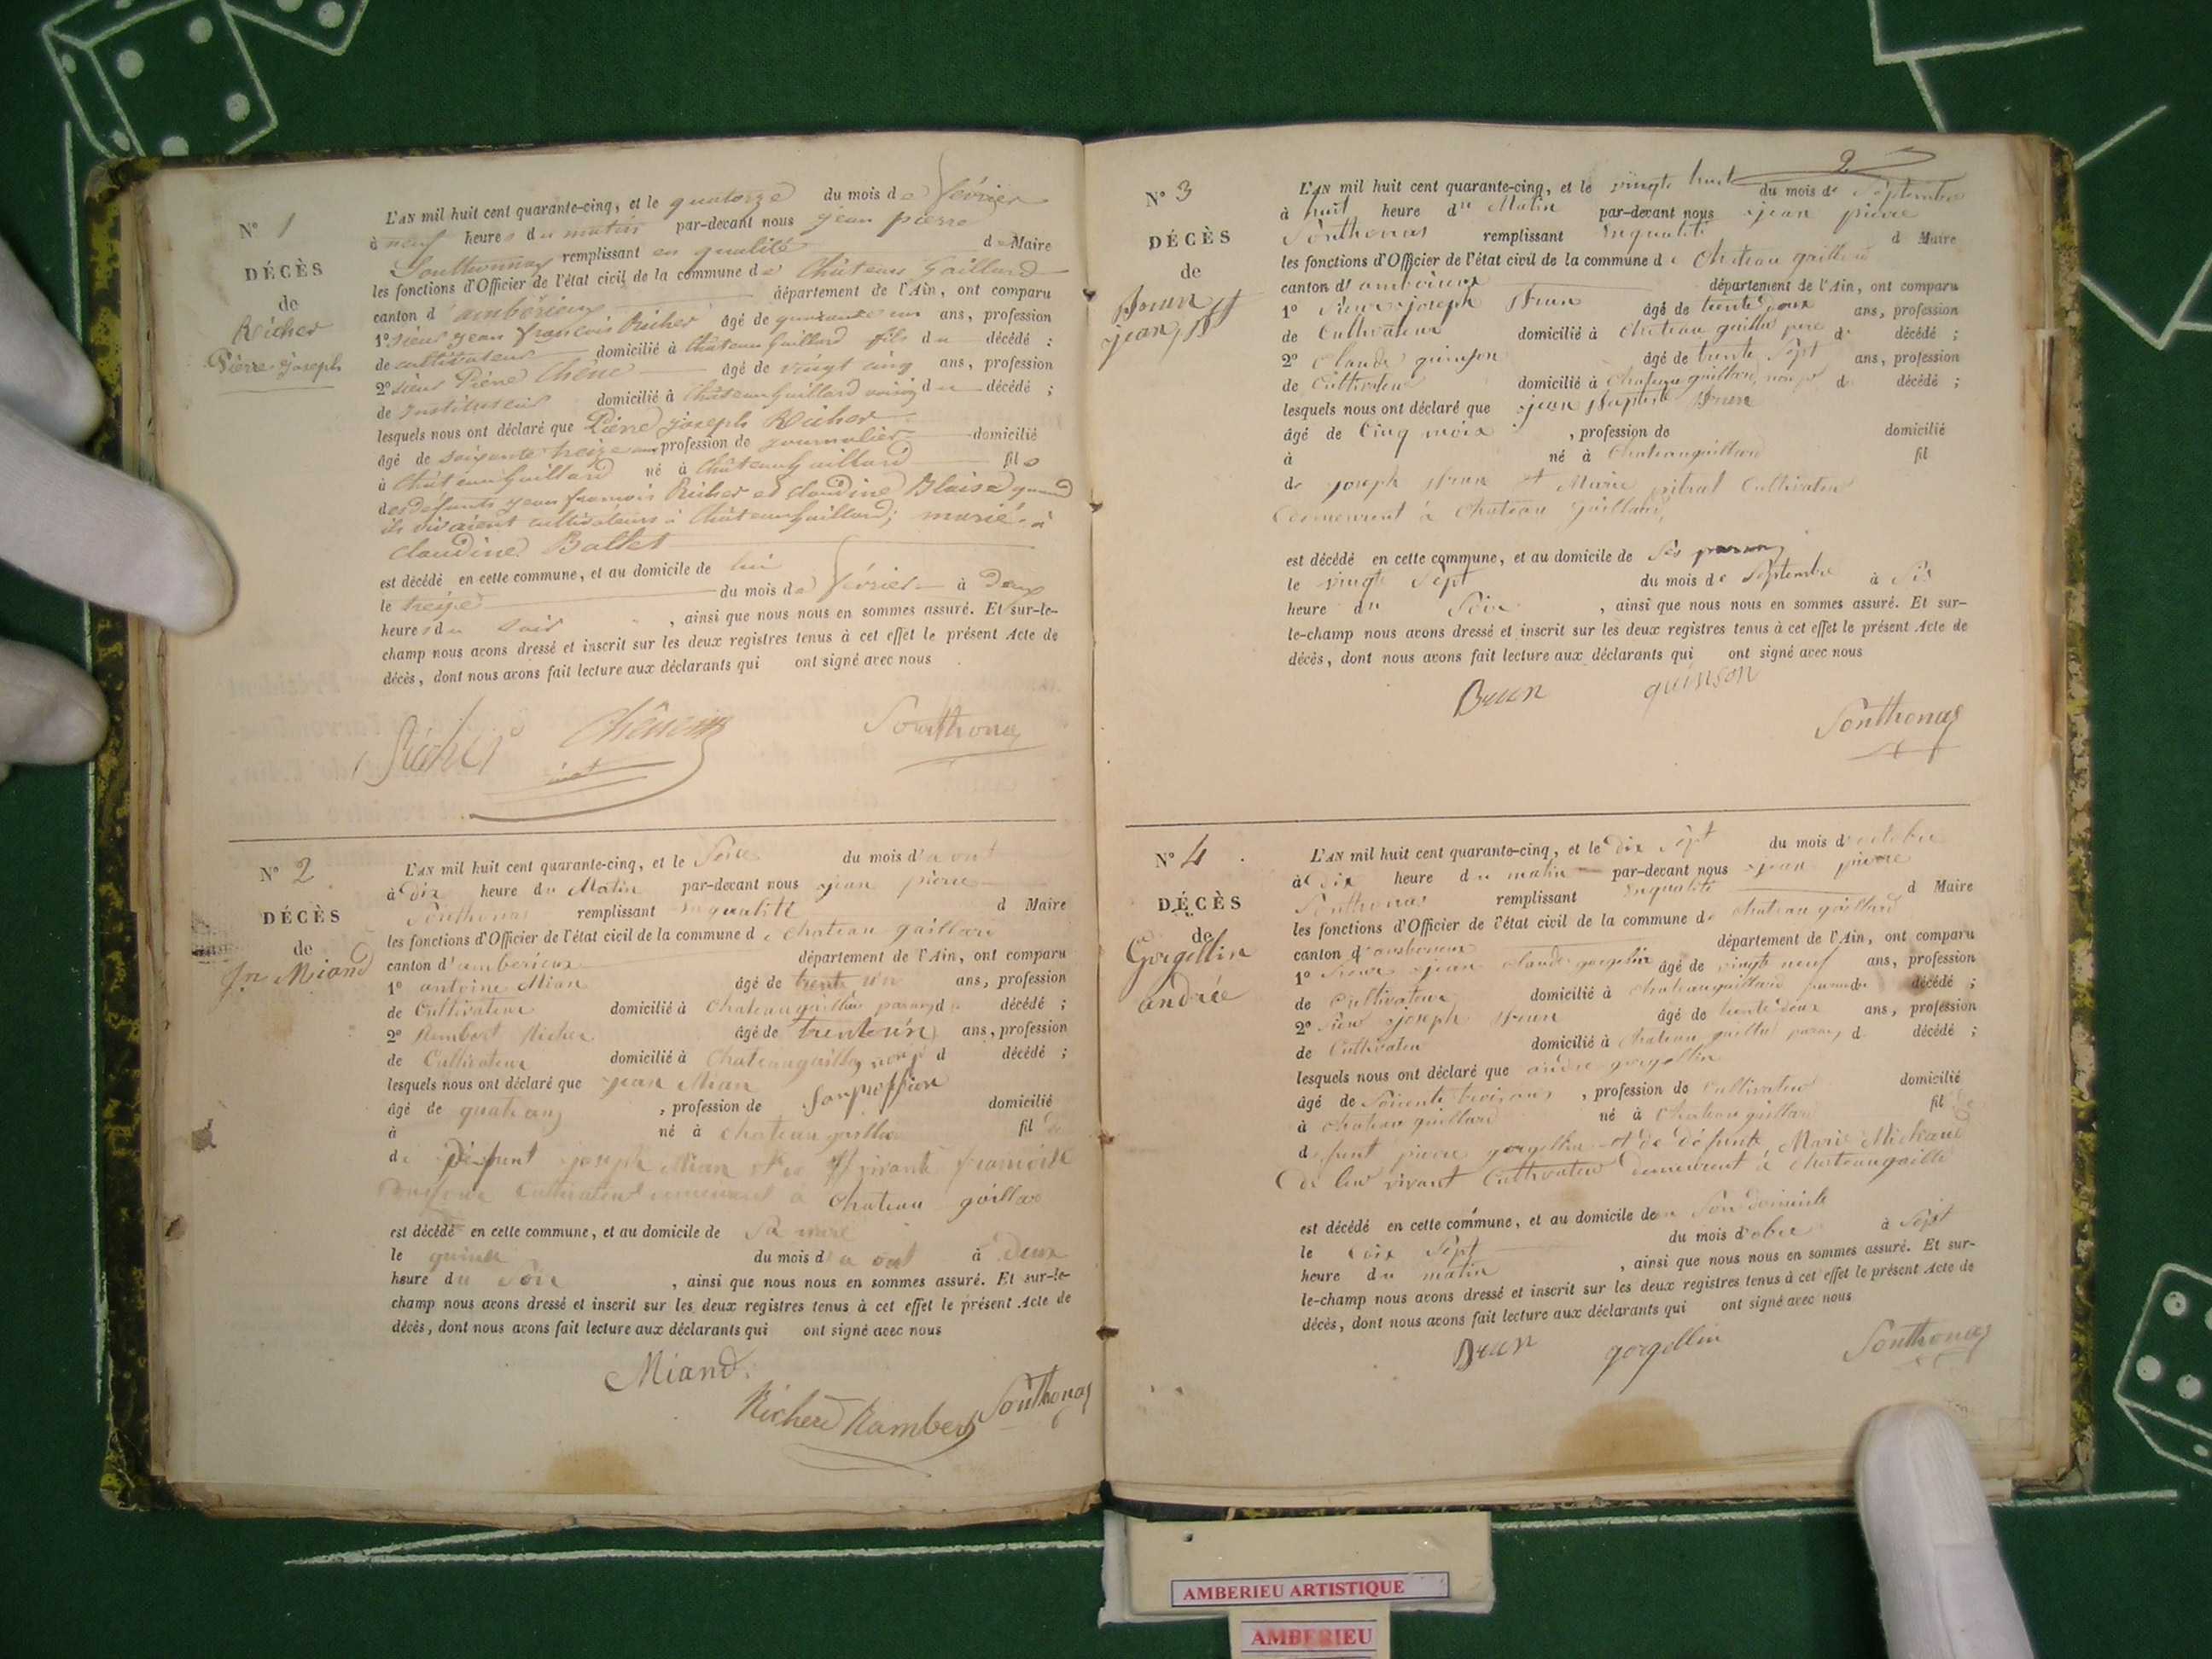 N° 1
DÉCÈS
de
Richer
Pierre Joseph
L'AN mil huit cent quarante-cinq, et le quatorze du mois de février
à neuf heures du matin par-devant nous jean pierre
Southonnax remplissant en qualité de Maire
les fonctions d'Officier de l'état civil de la commune de Château Gaillard
canton d'ambérieux département de l'Ain, ont comparu
1° sieur jean françois Richer âgé de quarante un ans, profession
de cultivateur domicilié à Château Gaillard fils du décédé ;
2° sieur Pierre Chêne âgé de vingt cinq ans, profession
de instituteur domicilié à Château Gaillard voisin du décédé ;
lesquels nous ont déclaré que Pierre joseph Richer
âgé de soixante treize ans profession de journalier domicilié
à Château Gaillard né à Château Gaillard fils
des défunts jean françois Richer et claudine Blaise quand
ils vivaient cultivateurs à Château Gaillard; marié à
claudine Ballet
est décédé en cette commune, et au domicile de lui
le treize du mois de février à deux
heures du soir , ainsi que nous nous en sommes assuré. Et sur-le-
champ nous avons dressé et inscrit sur les deux registres tenus à cet effet le présent Acte de
décès, dont nous avons fait lecture aux déclarants qui ont signé avec nous
Richer Southonax
N° 2
DÉCÈS
de
Jn Miand
L'AN mil huit cent quarante-cinq, et le du mois d'aout
à dix heure du Matin par-devant nous jean pierre
Sonthonas remplissant enqualité d Maire
les fonctions d'Officier de l'état civil de la commune de chateau gaillard
canton d'amberieux département de l'Ain, ont comparu
1° antoine Mian âgé de trente un ans, profession
de Cultivateur domicilié à Chateaugaillar d décédé ;
2° Rembert Richer âgé de trenteun ans, profession
de Cultivateur domicilié à Chateaugaillar d décédé ;
lesquels nous ont déclaré que jean Mian
âgé de quatre ans , profession de Sanproffion domicilié
à né à chateau gaillar fil de
de Défunt joseph Mian francoise
Cultivateur à chateau gaillar
est décédé en cette commune, et au domicile de Sa mere
le quinze du mois d'aout à deux
heure du soir , ainsi que nous nous en sommes assuré. Et sur-le-
champ nous avons dressé et inscrit sur les deux registres tenus à cet effet le présent Acte de
décès, dont nous avons fait lecture aux déclarants qui ont signé avec nous
Miand
Richerd Rambert Sonthonas
2
N° 3
DÉCÈS
de
Brun
jean Bte
L'AN mil huit cent quarante-cinq, et le vingt huit du mois de Septembre
à huit heure du Matin par-devant nous jean pierre
Sonthonas remplissant Enqualité d Maire
les fonctions d'Officier de l'état civil de la commune de Chateau gaillard
canton d'amberieux département de l'Ain, ont comparu
1° Sieur joseph Brun âgé de trente deux ans, profession
de Cultivateur domicilié à Chateau gaillar pere d décédé ;
2° Claude quinson âgé de trente Sept ans, profession
de Cultivateur domicilié à Chateau gaillard d décédé ;
lesquels nous ont déclaré que jean Baptiste Brun
âgé de Cinq moix , profession de domicilié
à né à Chateaugaillard fil
de joseph Brun et Marie Cultivateur
demeurent à Chateau Gaillard
est décédé en cette commune, et au domicile de Ses
le vingt Sept du mois de Septembre à Six
heure du Soir , ainsi que nous nous en sommes assuré. Et sur-
le-champ nous avons dressé et inscrit sur les deux registres tenus à cet effet le présent Acte de
décès, dont nous avons fait lecture aux déclarants qui ont signé avec nous
Brun quinson
Sonthonas
N° 4
DÉCÈS
de
Gorgellin
andrée
L'AN mil huit cent quarante-cinq, et le dix Sept du mois d'octobre
à dix heure du matin par-devant nous jean pierre
Sonthonas remplissant Enqualité d Maire
les fonctions d'Officier de l'état civil de la commune de chateau gaillard
canton d'amberieux département de l'Ain, ont comparu
1° Sieur jean claude gorgelin âgé de vingt neuf ans, profession
de Cultivateur domicilié à chateaugaillard décédé ;
2° Sieur joseph Brun âgé de trente deux ans, profession
de Cultivateu domicilié à Chateau gaillar d décédé ;
lesquels nous ont déclaré que andre gorgellin
âgé de Soisente troisans , profession de Cultivateur domicilié
à chateau gaillard né à Chateau gaillar fil de
defunt pierre gorgellin et de défunte Marie Mickaud
de leur vivant Cultivateur demeurent à chateaugaille
est décédé en cette commune, et au domicile de Son domicile
le dix Sept du mois d'obre à Sept
heure du matin , ainsi que nous nous en sommes assuré. Et sur-
le-champ nous avons dressé et inscrit sur les deux registres tenus à cet effet le présent Acte de
décès, dont nous avons fait lecture aux déclarants qui ont signé avec nous
Brun gorgellin Sonthonas
AMBERIEU ARTISTIQUE
AMBERIEU